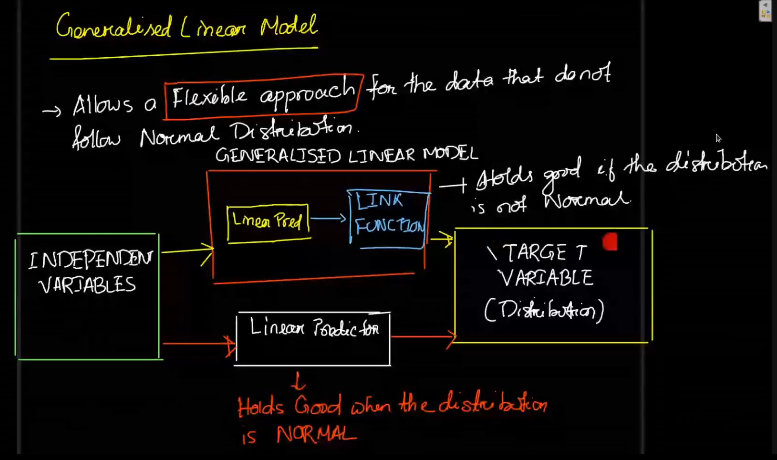 Generalised Linear Model
→ Allows a Flexible approach for the data that do not
follow Normal Distribution.
GENERALISED LINEAR MODEL
→ Holds good if the distribution
is not Normal.
Linear Pred
LINK
FUNCTION
INDEPENDEN
VARIABLES
\ TARGET
VARIABLE
(Distribution)
Linear Predictor
Holds Good when the distribution
is NORMAL